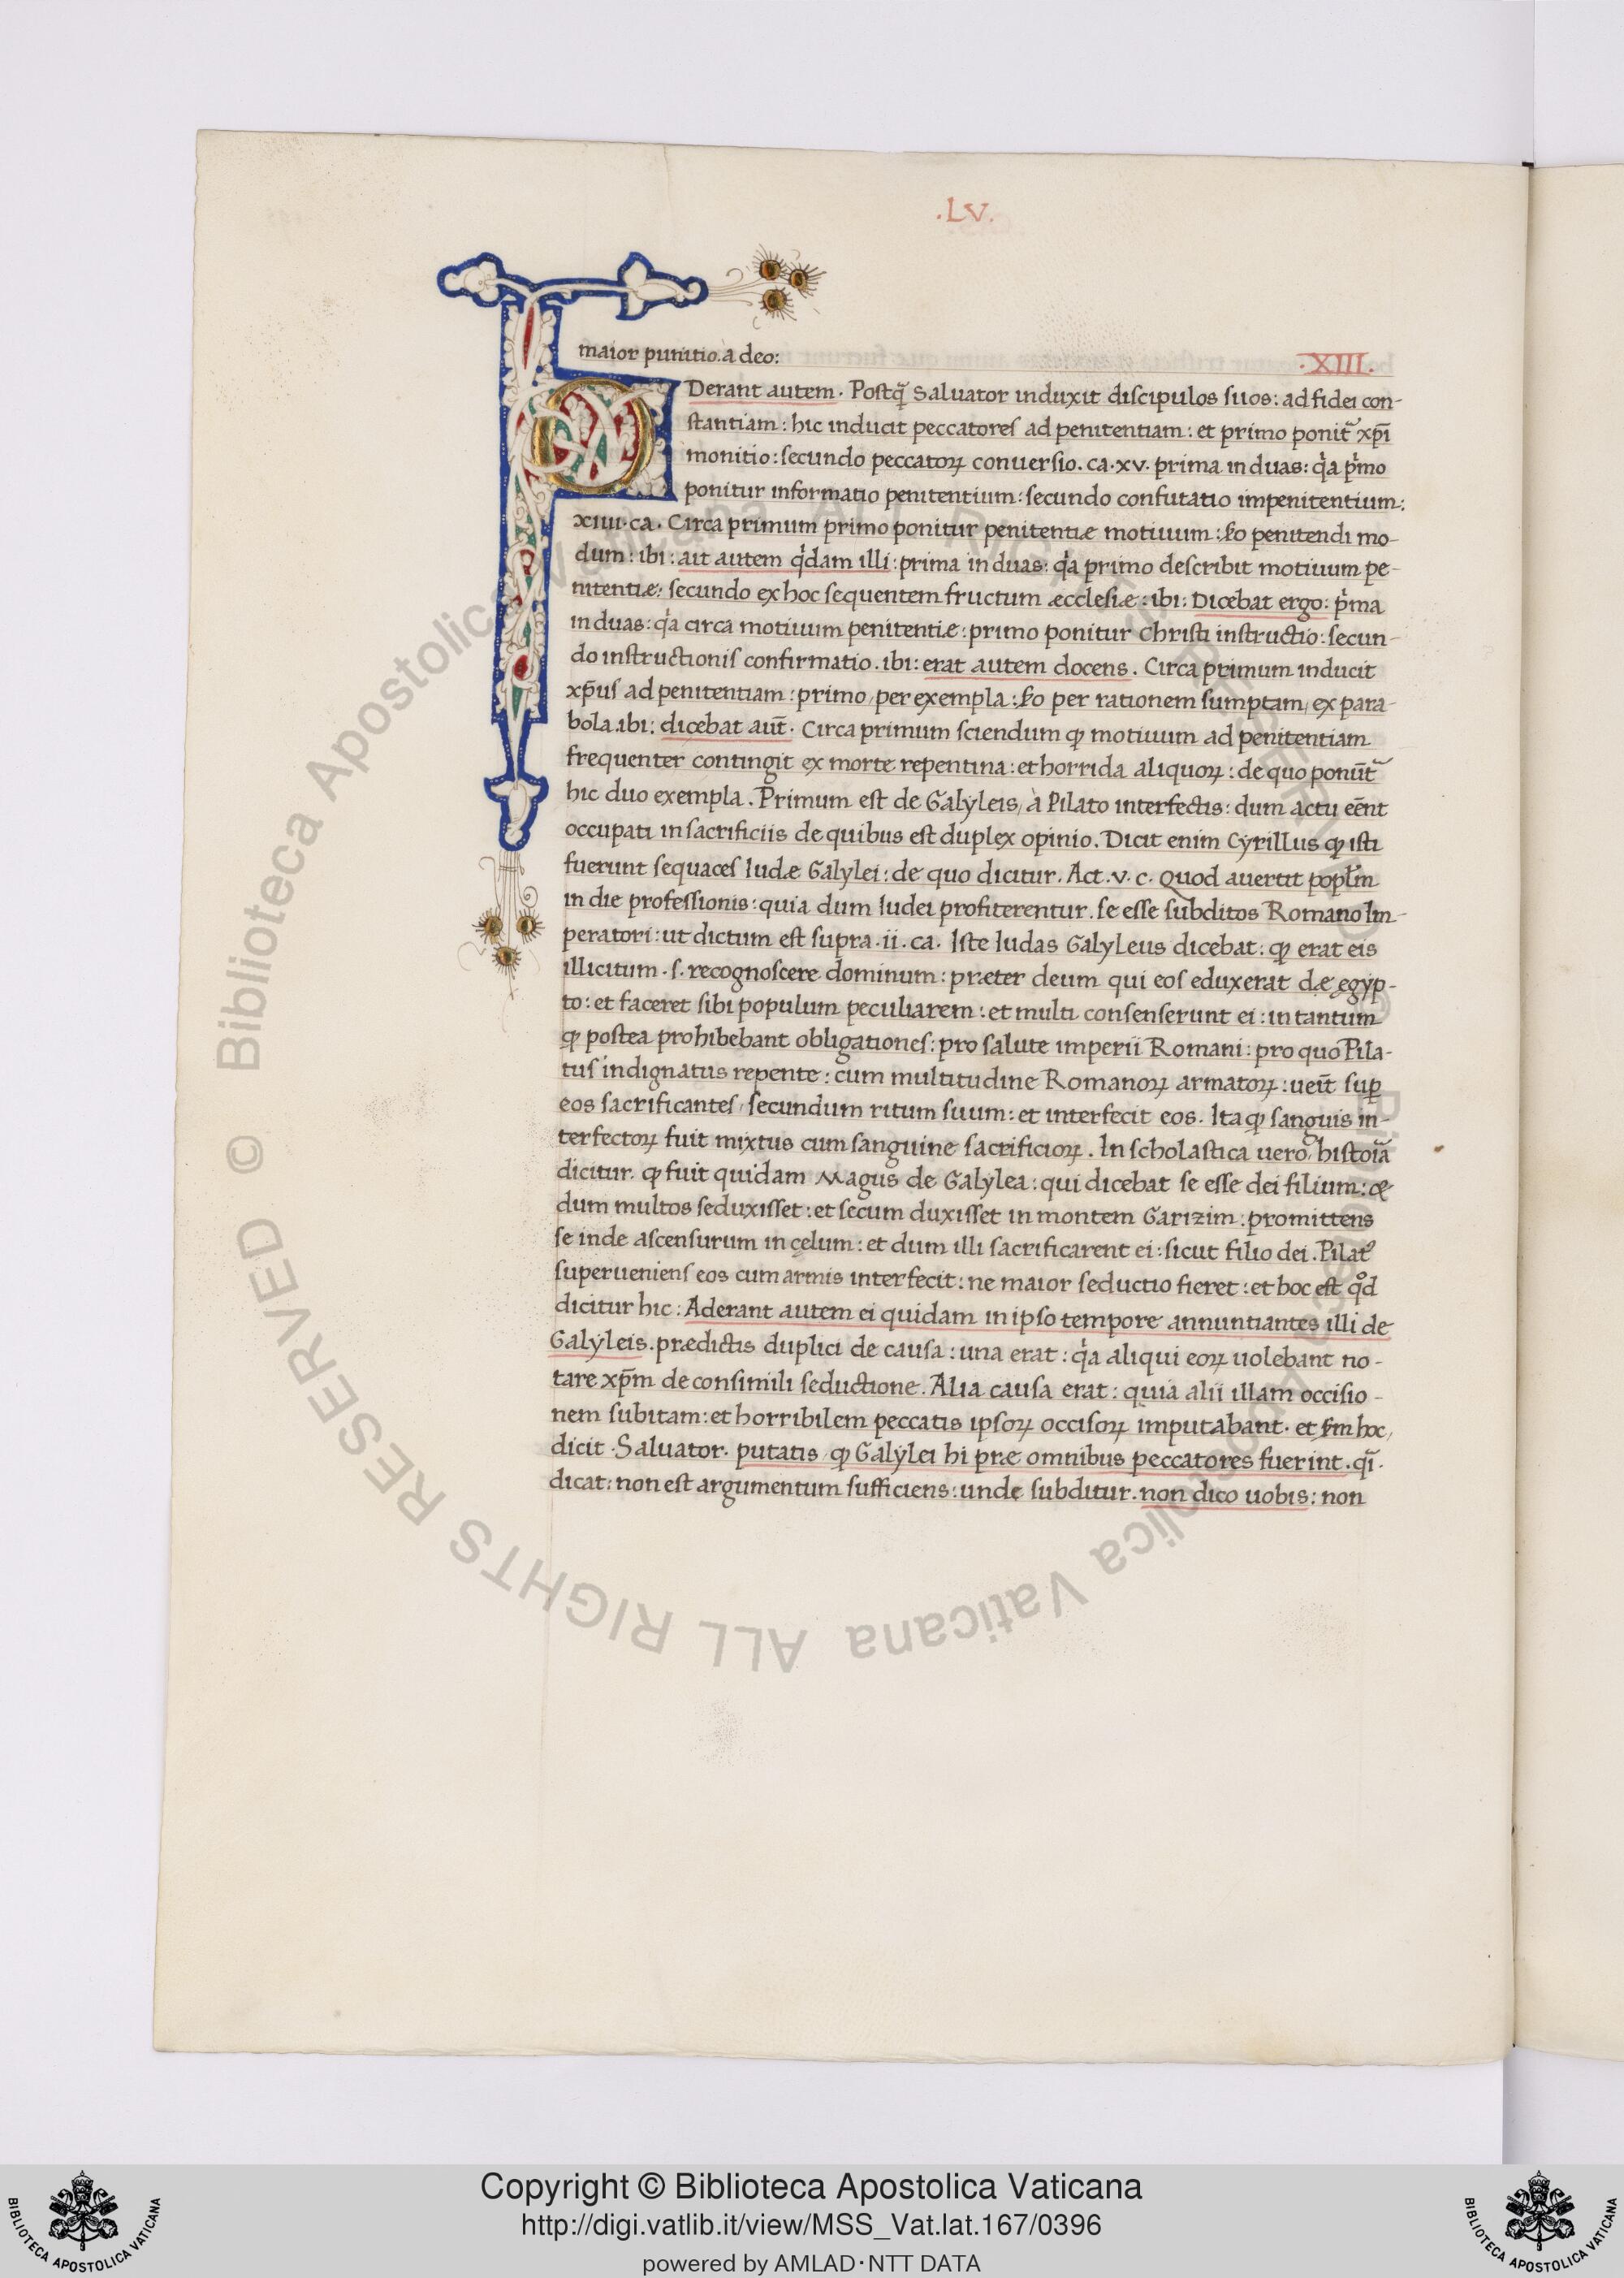 .LV.
maior punitio à deo:
.XIII.
Derant autem. Postq̃ Saluator induxit discipulos suos: ad fidei con-
stantiam: hic inducit peccatores ad penitentiam: et primo ponit᷑ xp̃i
monitio: secundo peccatoꝝ conuersio. ca. xv. prima in duas: qͥa pͥmo
ponitur informatio penitentium: secundo confutatio impenitentium:
xiiii. ca. Circa primum primo ponitur penitentiæ motiuum: ẜo penitendi mo-
dum: ibi: ait autem qͥdam illi: prima in duas: qͥa primo describit motiuum pe-
nitentiæ: secundo ex hoc sequentem fructum æcclesiæ: ibi: Dicebat ergo: pͥma
in duas: qͥa circa motiuum penitentiæ: primo ponitur Christi instructio: secun-
do instructionis confirmatio. ibi: erat autem docens. Circa primum inducit
xp̃us ad penitentiam: primo, per exempla: ẜo per rationem sumptam, ex para-
bola. ibi: dicebat aut̃. Circa primum sciendum ꝙ motiuum ad penitentiam
frequenter contingit ex morte repentina: et horrida aliquoꝝ: de quo ponũt᷑
hic duo exempla. Primum est de Galyleis, à Pilato interfectis: dum actu eẽnt
occupati in sacrificiis de quibus est duplex opinio. Dicit enim Cyrillus ꝙ isti
fuerunt sequaces Iudæ Galylei: de quo dicitur. Act. v. c. Quod auertit popl̃m
in die professionis: quia dum Iudei profiterentur. se esse subditos Romano Im-
peratori: ut dictum est supra. ii. ca. Iste Iudas Galyleus dicebat: ꝙ erat eis
illicitum. s. recognoscere dominum: præter deum qui eos eduxerat dæ ęgyp-
to: et faceret sibi populum peculiarem: et multi consenserunt ei: in tantum
ꝙ postea prohibebant obligationes: pro salute imperii Romani: pro quo Pila-
tus indignatus repente: cum multitudine Romanoꝝ armatoꝝ: ueit̃ suꝑ
eos sacrificantes, secundum ritum suum: et interfecit eos. Ita ꝙ sanguis in-
terfectoꝝ fuit mixtus cum sanguine sacrificioꝝ. In scholastica uero, histoi᷑a
dicitur. ꝙ fuit quidam Magus de Galylea: qui dicebat se esse dei filium: &
dum multos seduxisset: et secum duxisset in montem Garizim: promittens
se inde ascensurum in cęlum: et dum illi sacrificarent ei: sicut filio dei. Pilatꝰ
superueniens eos cum armis interfecit: ne maior seductio fieret: et hoc est qͦd
dicitur hic: Aderant autem ei quidam in ipso tempore annuntiantes illi de
Galyleis. prædictis duplici de causa: una erat: qͥa aliqui eoꝝ uolebant no-
tare xp̃m de consimili seductione. Alia causa erat: quia alii illam occisio-
nem subitam: et horribilem peccatis ipsoꝝ occisoꝝ imputabant. et ẜm hoc,
dicit Saluator. putatis ꝙ Galylei hi præ omnibus peccatores fuerint. q̃i.
dicat: non est argumentum sufficiens: unde subditur. non dico uobis: non
© Biblioteca Apostolica Vaticana ALL RIGHTS RESERVED © Biblioteca Apostolica Vaticana ALL RIGHTS RESERVED
Copyright © Biblioteca Apostolica Vaticana
http://digi.vatlib.it/view/MSS_Vat.lat.167/0396
powered by AMLAD·NTT DATA
BIBLIOTECA APOSTOLICA VATICANA
BIBLIOTECA APOSTOLICA VATICANA